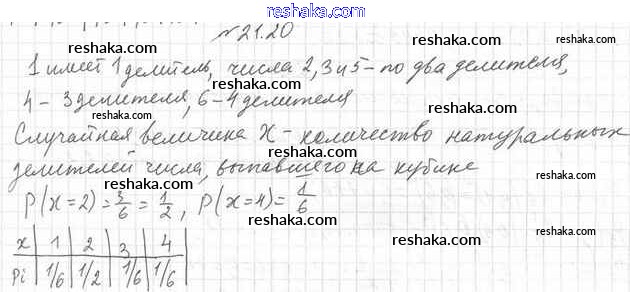 reshaka.com
№21.20
reshaka.com reshaka.com reshaka.com
1 имеет 1 делитель, числа 2, 3 и 5 – по два делителя,
4 – 3 делителя, 6 – 4 делителя
reshaka.com reshaka.com reshaka.com
Случайная величина X – количество натуральных
делителей числа, выпавшего на кубике
reshaka.com reshaka.com
P(x=2)=3/6=1/2, P(x=4)=1/6
reshaka.com
x 1 2 3 4
reshaka.com
Pi 1/6 1/2 1/6 1/6
reshaka.com